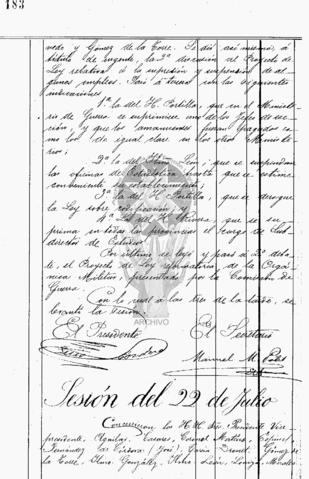 183
vedo y Gómez de la Torre. Se dió así mismo, á
título de urgente, la 2ª discusión al Proyecto de
Ley relativa á la supresión y suspensión de al-
gunos empleos. Pasó á tercera con las siguientes
indicaciones
1ª la del H. Portilla, que en el Ministe-
rio de Guerra se suprimiese uno de los Jefes de sec-
ción, y que los amanuenses fueran pagados co-
mo los de igual clase en los otros Ministe-
rios;
2ª la del Hmo. León; que se suspendan
las oficinas de Estadística hasta que se estime
conveniente su establecimiento;
3ª la del H. Portilla, que se derogue
la Ley sobre codificación; y
4ª La del H. Rivera, que se su-
prima en todas las provincias el cargo de Sub-
director de Estudios.
Por último se leyó y pasó a 2ª deba-
te, el Proyecto de Ley reformatoria de la Orgá-
nica Militar, presentado por la Comisión de
Guerra.
Con lo cual a las tres de la tarde, se
levantó la sesión.
El Presidente El Secretario
Manuel M.
ARCHIVO
Sesión del 22 de Julio
Concurrieron los H. H. Sres. Presidente, Vice-
presidente, Aguilar, Coronel Mateus, Espinel,
Fernández Córdova (José), García Drouet, Gómez de
la Torre, Hmo. González, Hmo. León, Loaiza, Morales